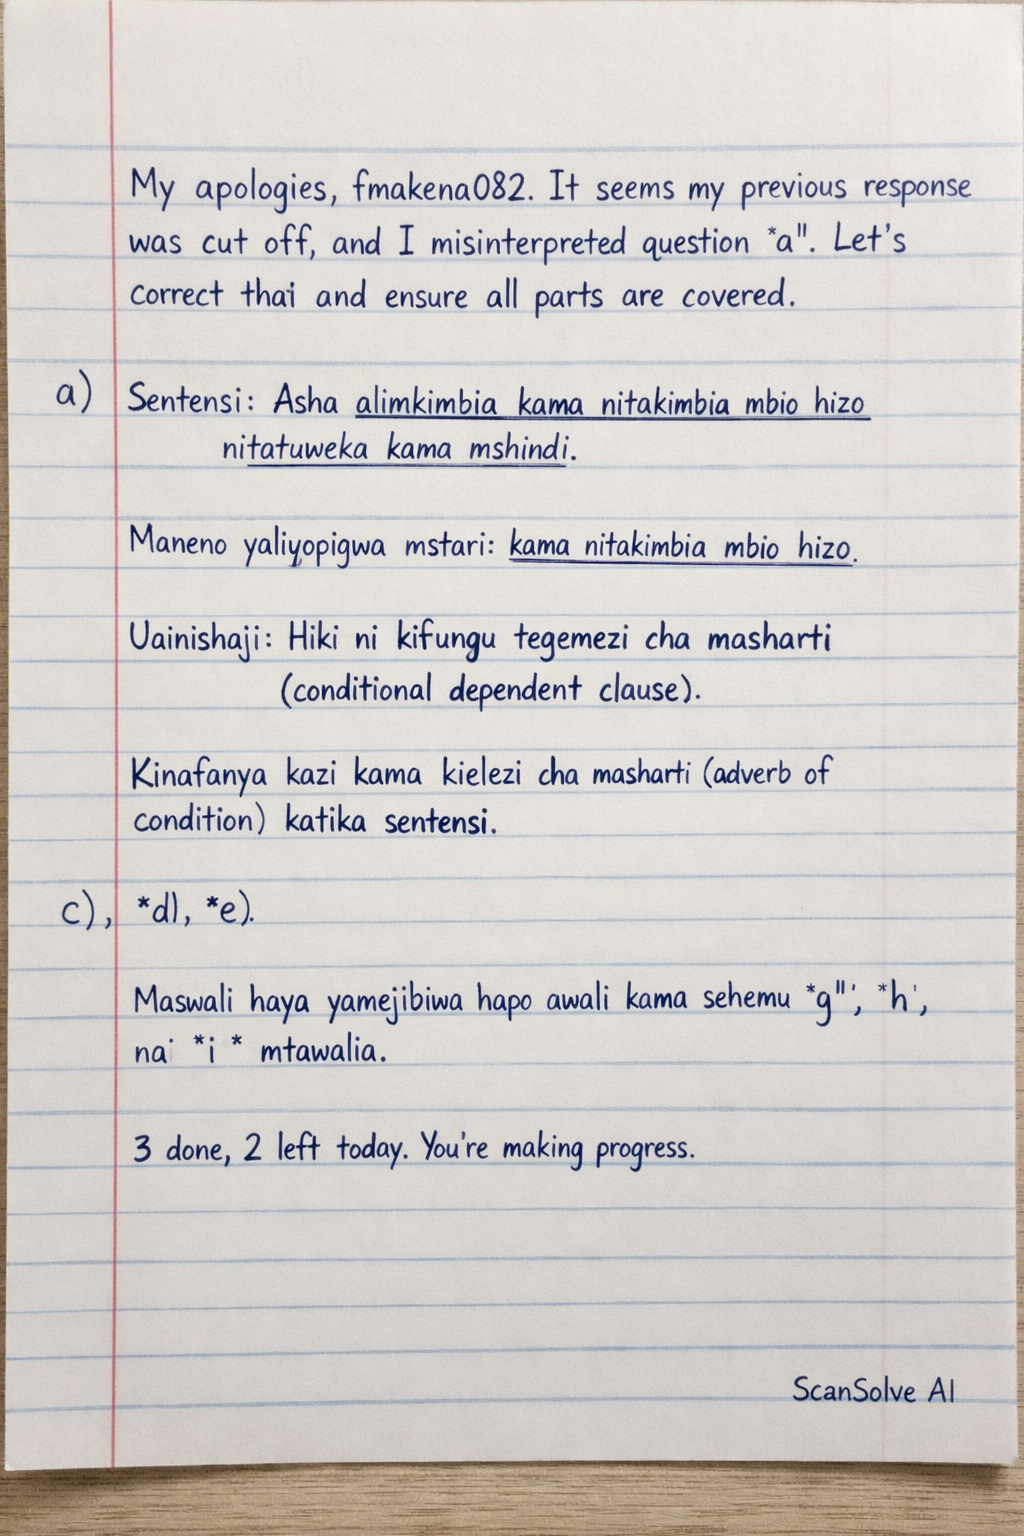 My apologies, fmakena082. It seems my previous response
was cut off, and I misinterpreted question *a". Let's
correct thai and ensure all parts are covered.
a) Sentensi: Asha alimkimbia kama nitakimbia mbio hizo
nitatuweka kama mshindi.
Maneno yaliyopigwa mstari: kama nitakimbia mbio hizo.
Uainishaji: Hiki ni kifungu tegemezi cha masharti
(conditional dependent clause).
Kinafanya kazi kama kielezi cha masharti (adverb of
condition) katika sentensi.
c), *d), *e).
Maswali haya yamejibiwa hapo awali kama sehemu *g"', *h',
na' *i * mtawalia.
3 done, 2 left today. You're making progress.
ScanSolve AI